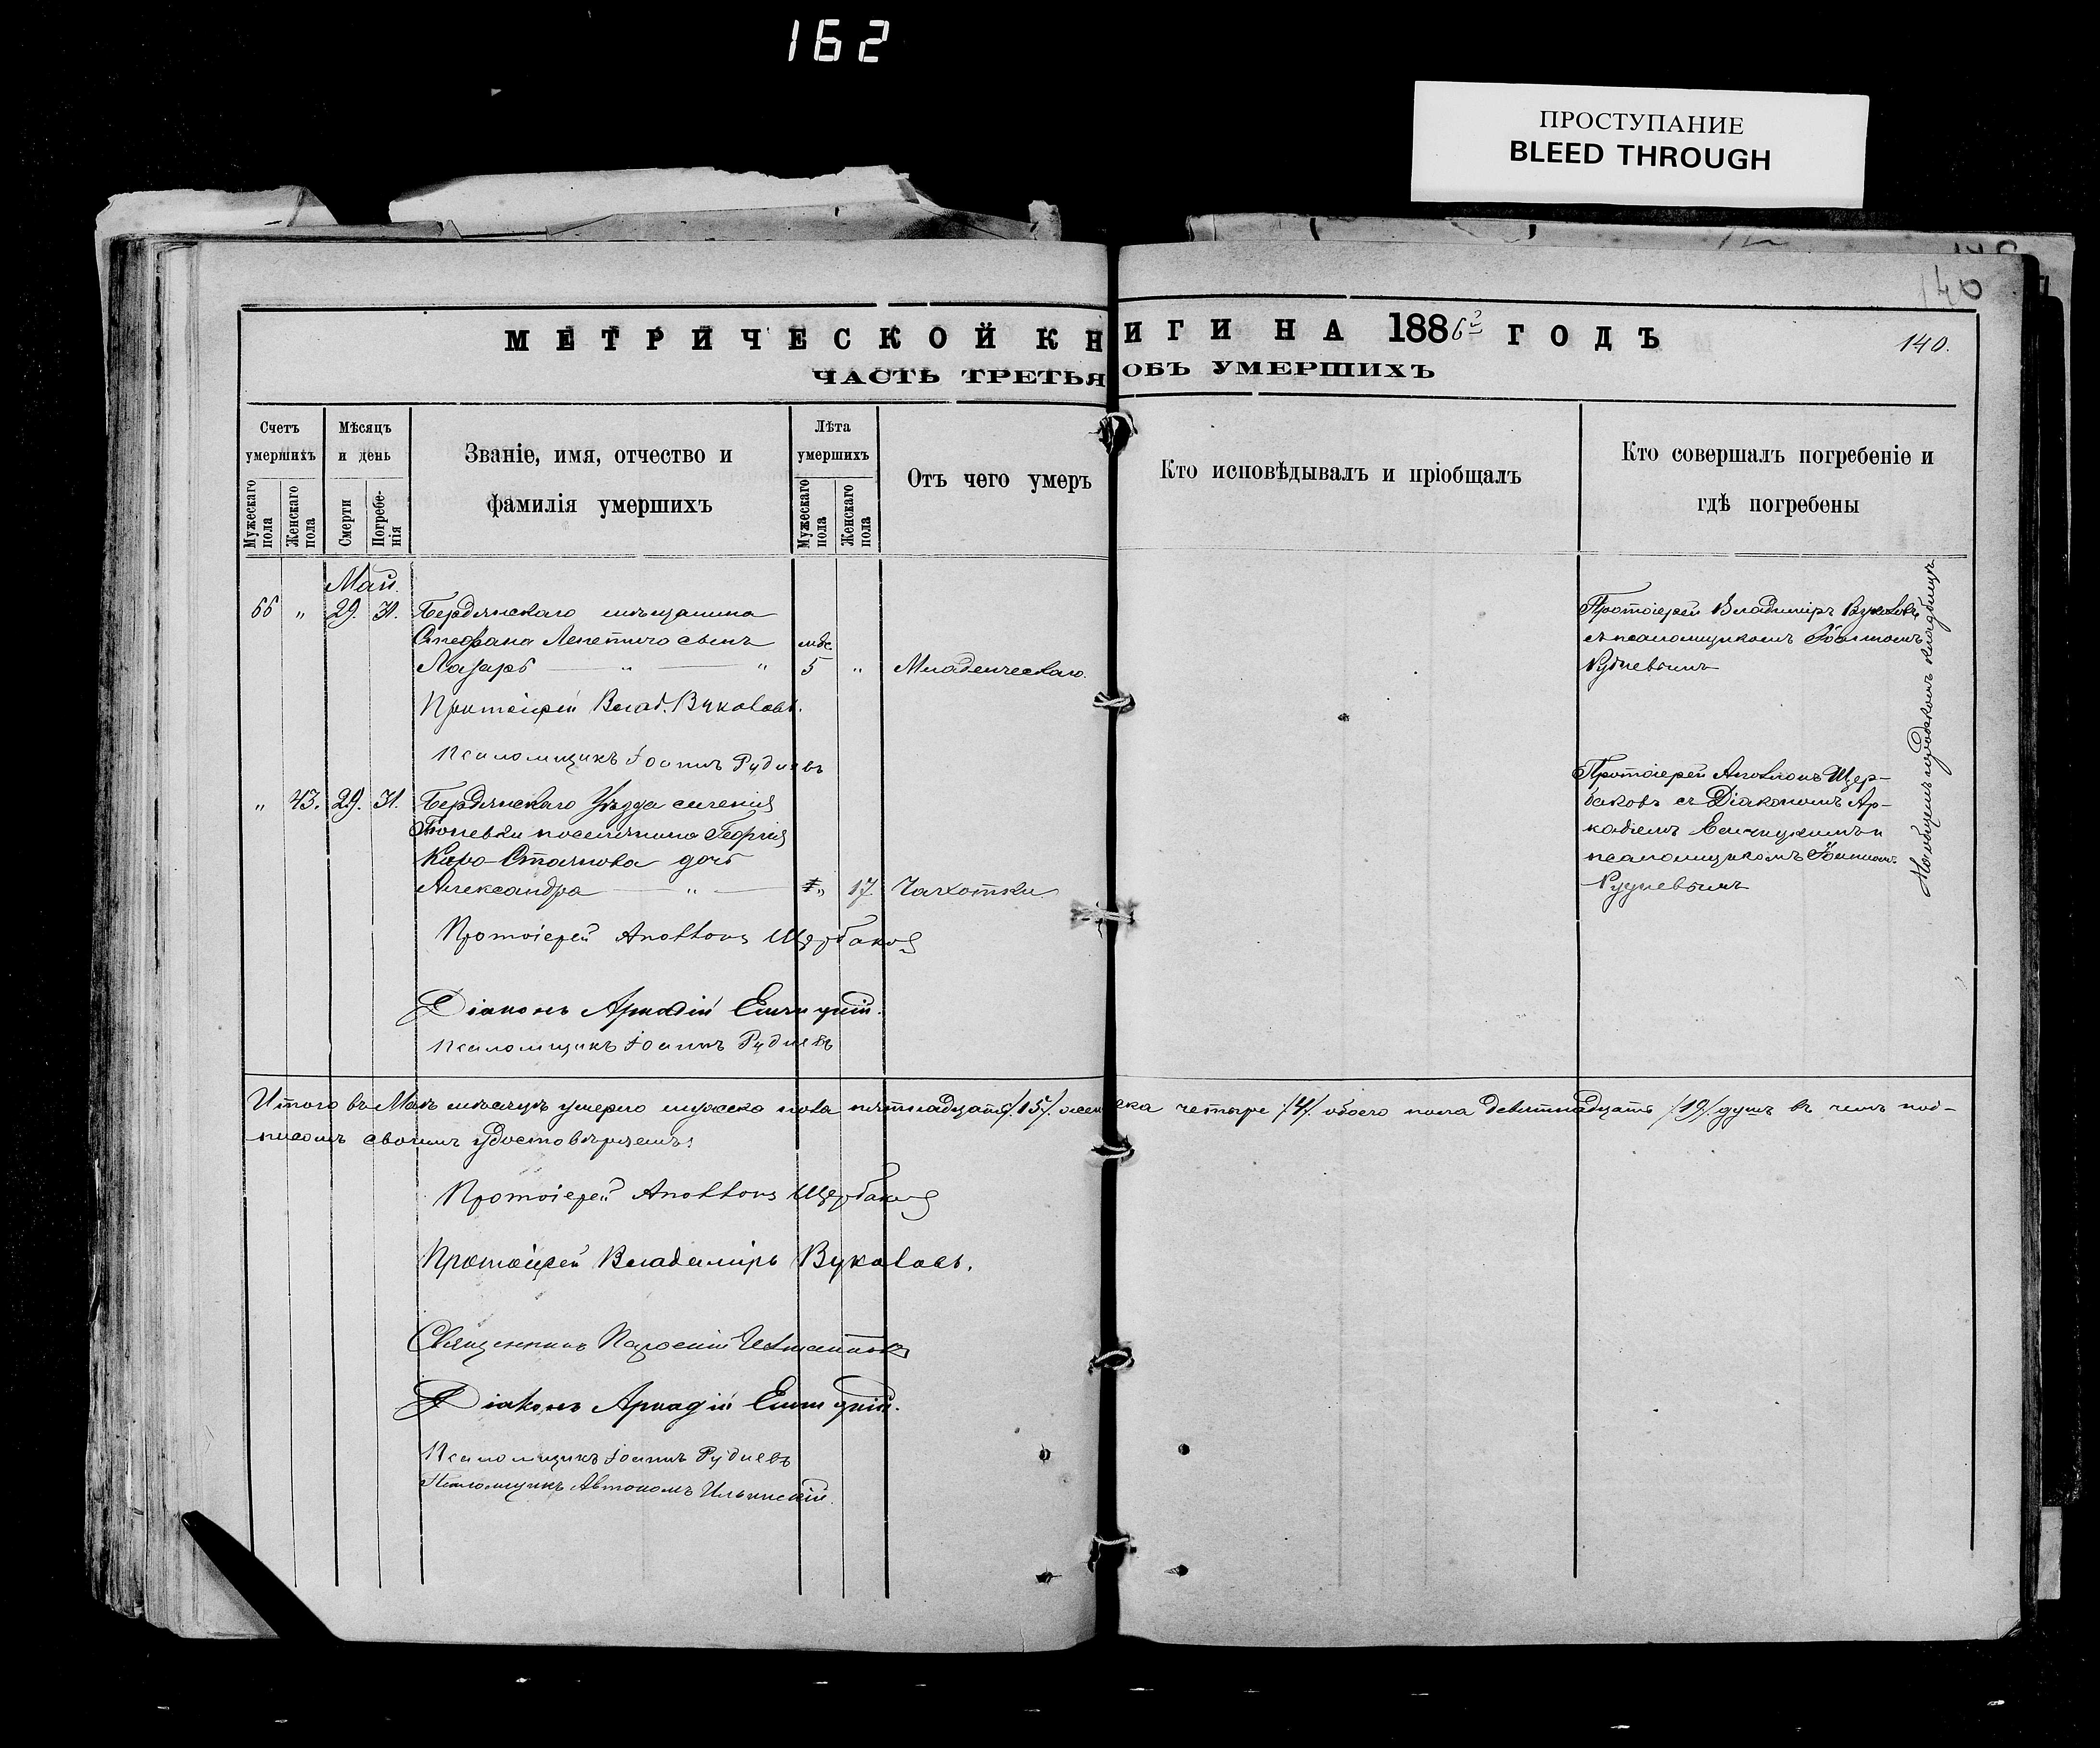 162
ПРОСТУПАНИЕ
BLEED THROUGH
140
МЕТРИЧЕСКОЙ КНИГИ НА 1886й ГОДЪ
140.
ЧАСТЬ ТРЕТЬЯ ОБЪ УМЕРШИХЪ
Счетъ умершихъ
Мужескаго пола
Женскаго пола
Мѣсяцъ и день
Смерти
Погребенія
Званіе, имя, отчество и
фамилія умершихъ
Лѣта умершихъ
Мужескаго пола
Женскаго пола
Отъ чего умеръ
Кто исповѣдывалъ и пріобщалъ
Кто совершалъ погребеніе и
гдѣ погребены
Май.
66 „ 29. 31. Бердянскаго мѣщанина
Стефана Лепетичо сынъ мѣс.
Лазарь — „ — „ 5 „ Младенческаго.
Протоіерей Владиміръ Вуколовъ
съ псаломщикомъ Іоанномъ
Рудневымъ
Протоіерей Влад. Вуколовъ.
Псаломщикъ Іоаннъ Рудневъ
„ 43. 29. 31. Бердянскаго Уѣзда селенія
поселянина Георгія
Кара-Стоянова дочь
Александра — „ — „ 17 Чахотки.
Протоіерей Аполлонъ Щер-
баковъ съ Діакономъ Ар-
кадіемъ и
псаломщикомъ Іоанномъ
Рудневымъ
На общемъ городскомъ кладбищѣ
Протоіерей Аполлонъ Щербаковъ
Діаконъ Аркадій
Псаломщикъ Іоаннъ Рудневъ
Итого въ Маѣ мѣсяцѣ умерло мужеска пола пятнадцать /15/. женска четыре /4/. обоего пола девятнадцать /19/. душъ въ чемъ под-
писомъ своимъ удостовѣряемъ:
Протоіерей Аполлонъ Щербаковъ
Протоіерей Владиміръ Вуколовъ.
Священникъ
Діаконъ Аркадій
Псаломщикъ Іоаннъ Рудневъ
Псаломщикъ Автономъ Ильинскій.